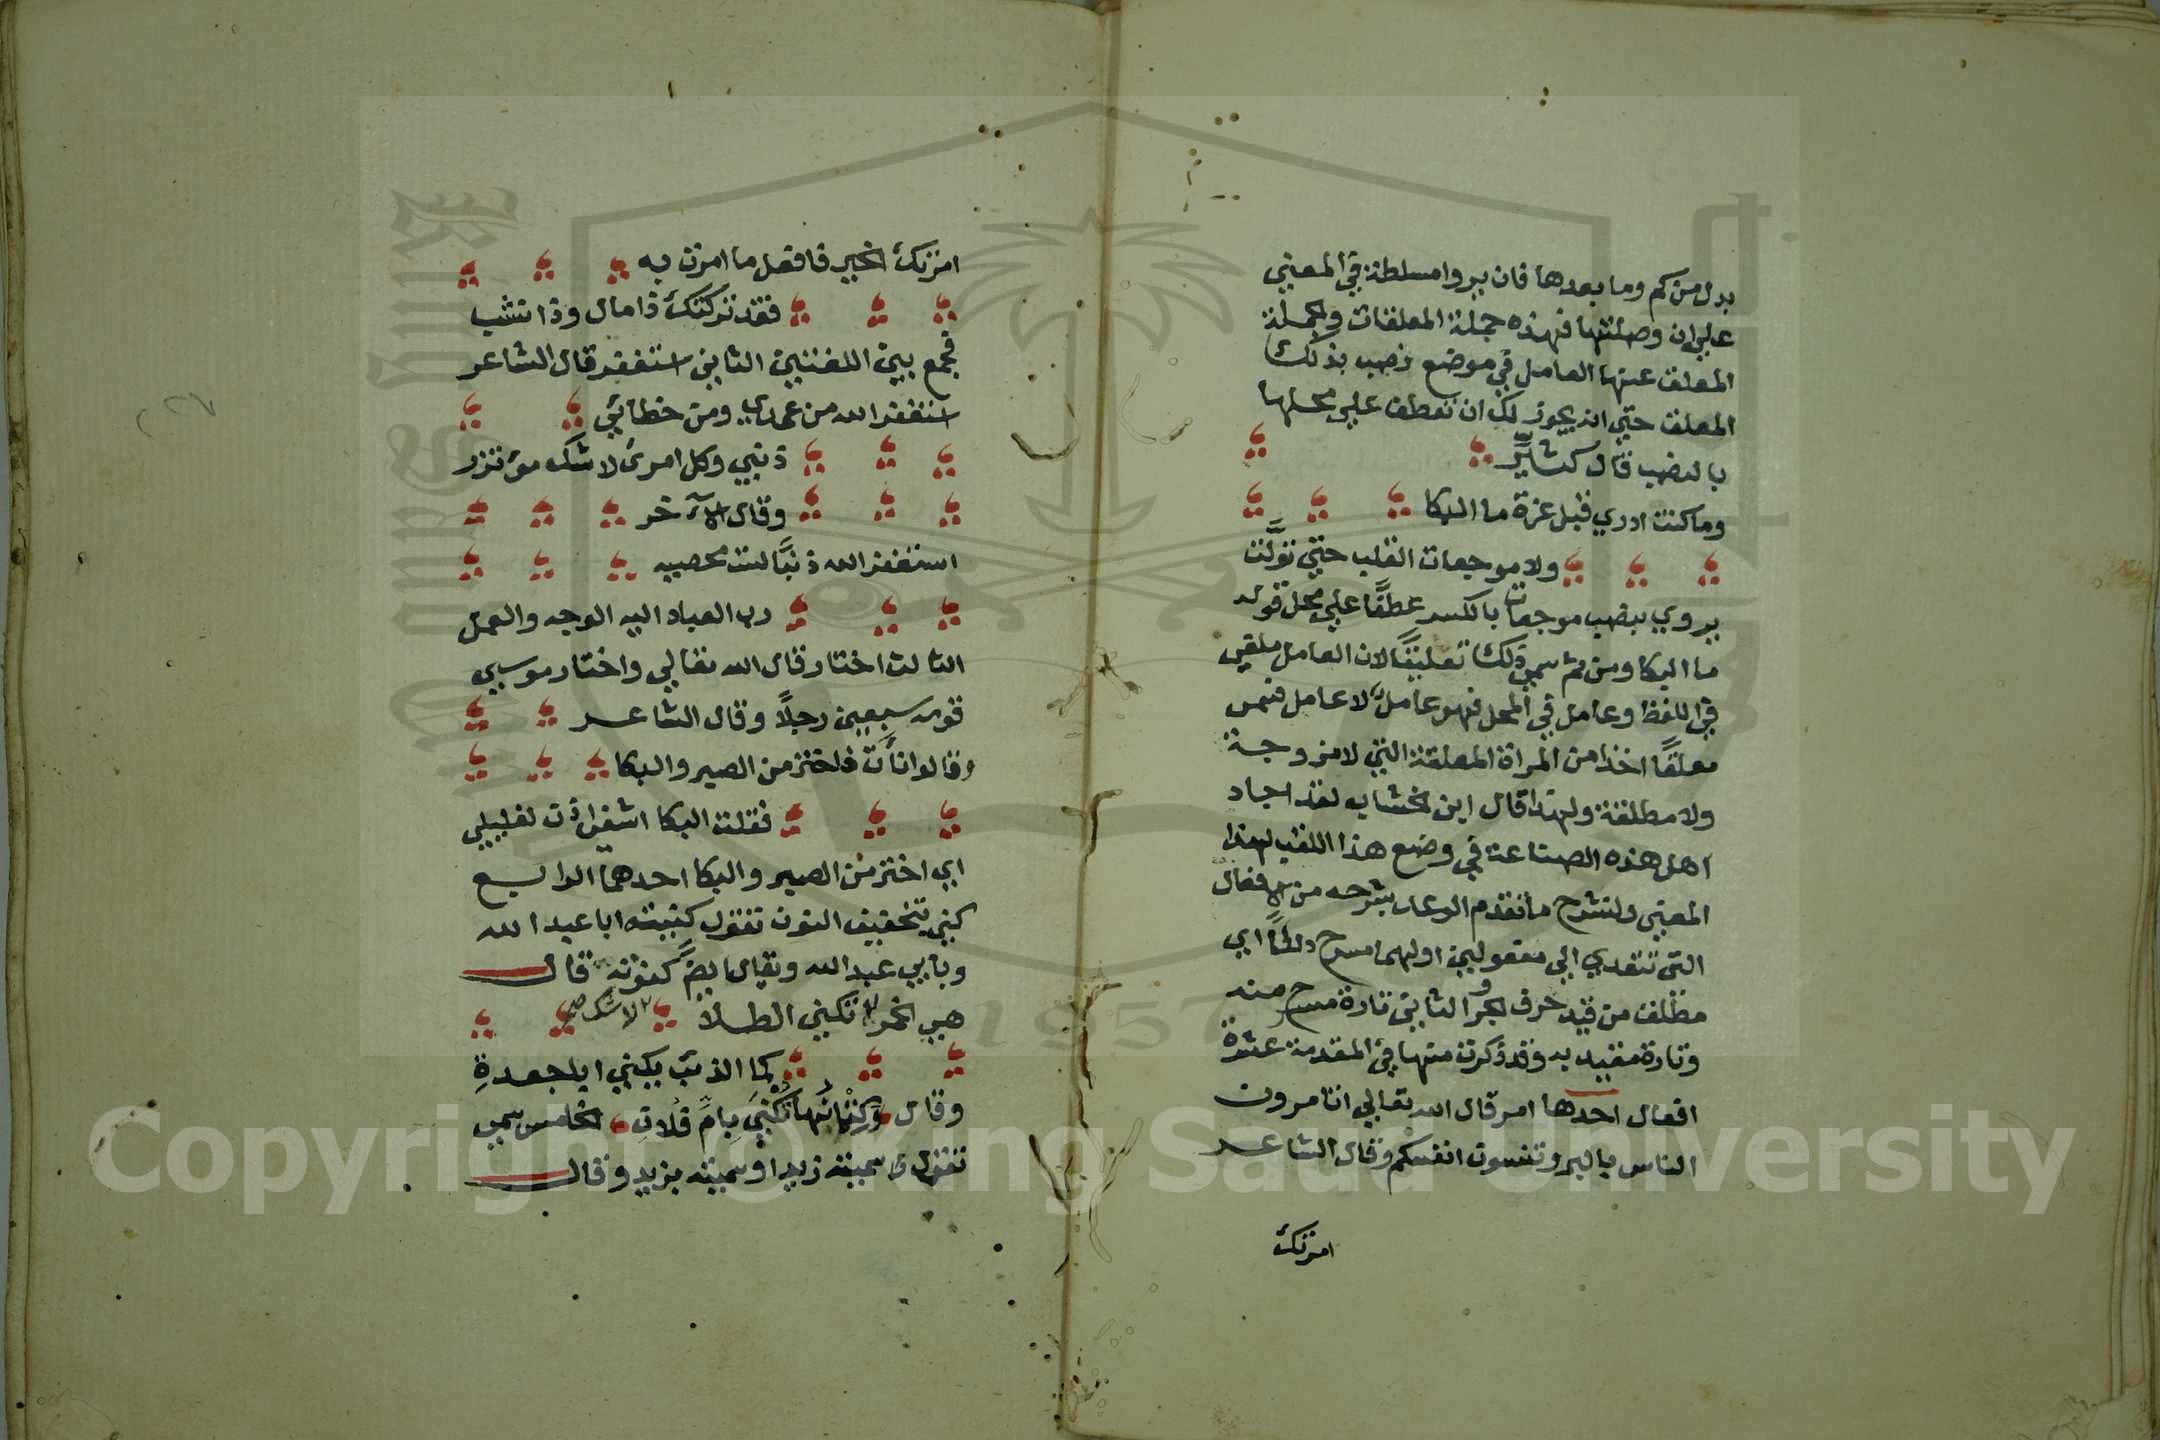 بدل من كم وما بعدها فان يروا مسلطة في المعني
علي ان وصلتها فهذه جملة المعلقات والجملة
المعلق عنها العامل في موضع نصب بذلك
المعلق حتي انه يجوز لك ان تعطف علي محلها
بالنصب قال كثير
وما كنت ادري قبل عزة ما البكا
ولا موجعات القلب حتي تولت
يروي بنصب موجعات بالكسر عطفا علي محل قوله
ما البكا ومن ثم سمي ذلك تعليقا لان العامل ملغي
في اللفظ وعامل في المحل فهو عامل لا عامل فسمي
معلقا اخذا من المراة المعلقة التي لا مزوجة
ولا مطلقة ولهذا قال ابن الخشاب لقد اجاد
اهل هذه الصناعة في وضع هذا اللقب لهذا
المعني ولنشرح ما تقدم الوعد بشرحه من الافعال
التي تتعدي الي مفعولين اولهما مسرح دائما اي
مطلق من قيد حرف الجر والثاني تارة مسرح منه
وتارة مقيد به وقد ذكرت منها في المقدمة عشرة
افعال احدها امر قال الله تعالي اتامرون
الناس بالبر وتنسون انفسكم وقال الشاعر
امرتك
امرتك الخير فافعل ما امرت به
فقد تركتك ذا مال وذا نشب
فجمع بين اللغتين الثاني استغفر قال الشاعر
استغفر الله من عمدي ومن خطائي
ذنبي وكل امرئ لا شك مؤتزر
وقال الآخر
استغفر الله ذنبا لست محصيه
رب العباد اليه الوجه والعمل
الثالث اختار قال الله تعالي واختار موسي
قومه سبعين رجلا وقال الشاعر
وقالوا نأت فاختر من الصبر والبكا
فقلت البكا اشفي اذن لغليلي
اي اختر من الصبر والبكا احدهما الرابع
كني بتخفيف النون تقول كنيته ابا عبد الله
وبابي عبد الله ويقال ايضا كنوته قال
هي الخمر تكني الطلا لا شك
كما الذئب يكني ابا جعدة
وقال وكتمانها تكني بام فلان الخامس سمي
تقول سميته زيدا وسميته بزيد وقال
Copyright © King Saud University
1957